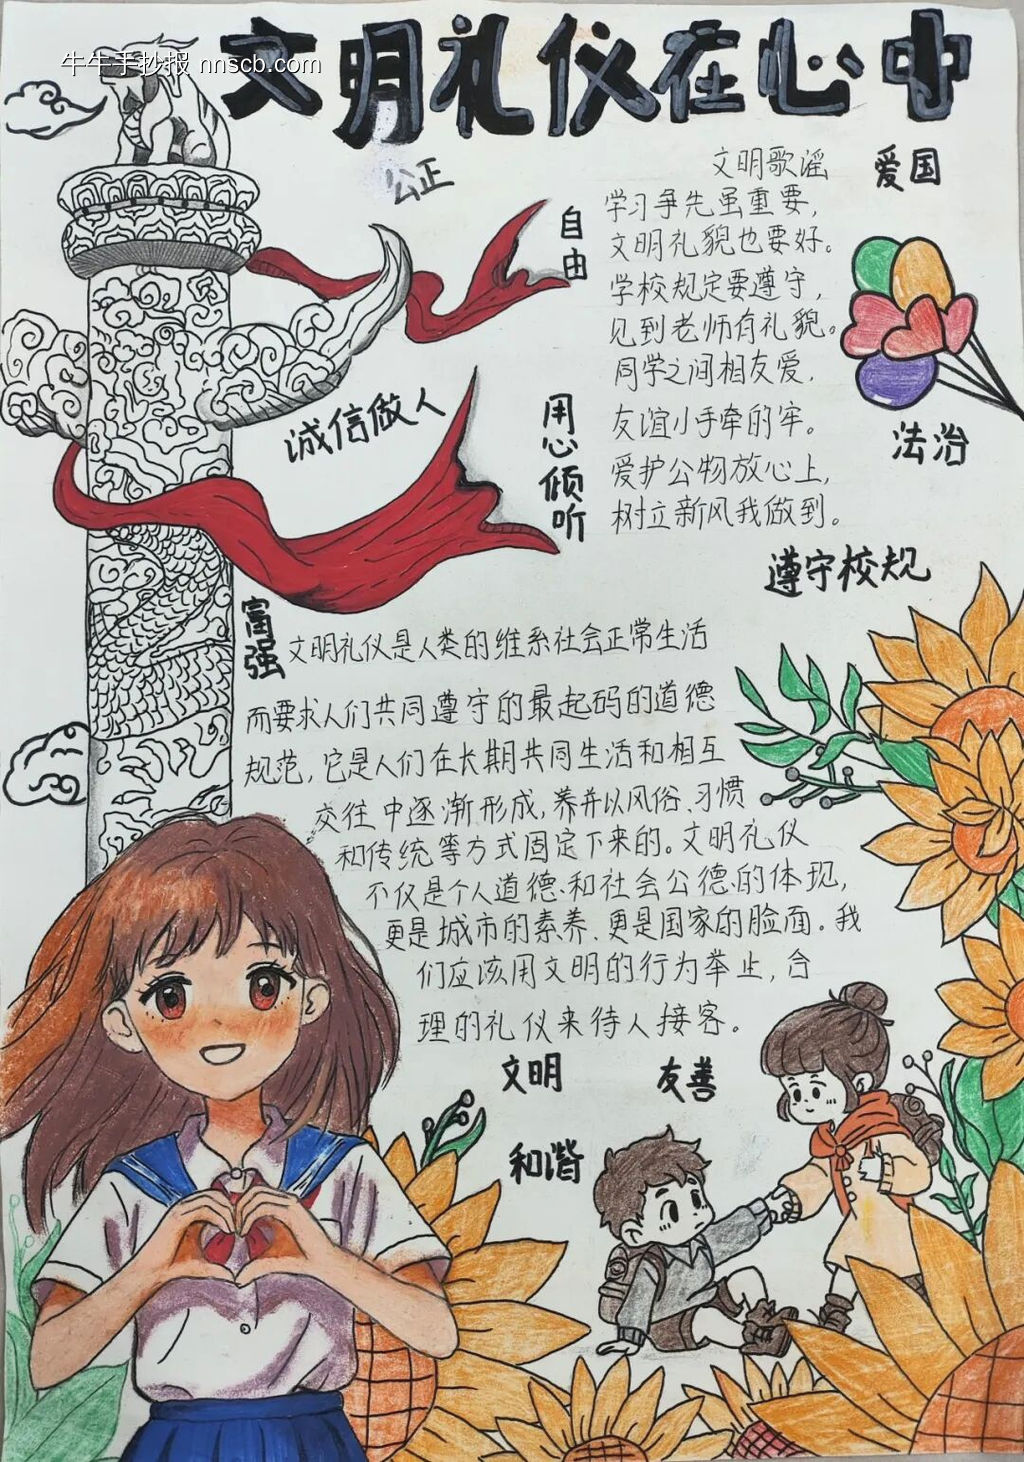 牛牛手抄报 nnscb.com
文明礼仪在心中
公正
自由
诚信做人
用心倾听
文明歌谣
爱国
学习争先虽重要，
文明礼貌也要好。
学校规定要遵守，
见到老师有礼貌。
同学之间相友爱，
友谊小手牵的牢。
爱护公物放心上，
树立新风我做到。
法治
遵守校规
富强
文明礼仪是人类的维系社会正常生活
而要求人们共同遵守的最起码的道德
规范，它是人们在长期共同生活和相互
交往中逐渐形成，养并以风俗、习惯
和传统等方式固定下来的。文明礼仪
不仅是个人道德、和社会公德的体现，
更是城市的素养、更是国家的脸面。我
们应该用文明的行为举止，合
理的礼仪来待人接客。
文明
友善
和谐